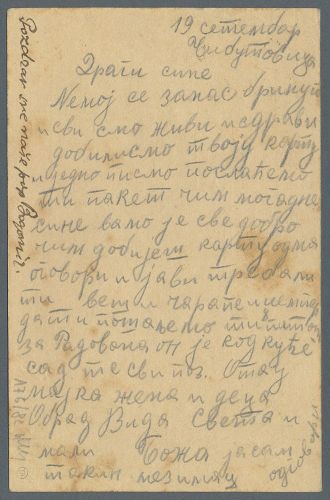 19 сетембар
Чибутовица
Драги сине
Немој се за нас бринути
и сви смо живи и здрави
добили смо твоју карту
и једно писмо послаћемо
ти пакет чим могадне
сине вамо је све добро
чим добијеш карту одма
оговори и јави треба ли
ти веш и чарапе и
да ти пошаљемо ти
за Радована он је код куће
сад те сви поз. Отац
мајка жена и деца
Обрад Вида Света и
мали Божа јасам
одговори
Pozdrav sve naše